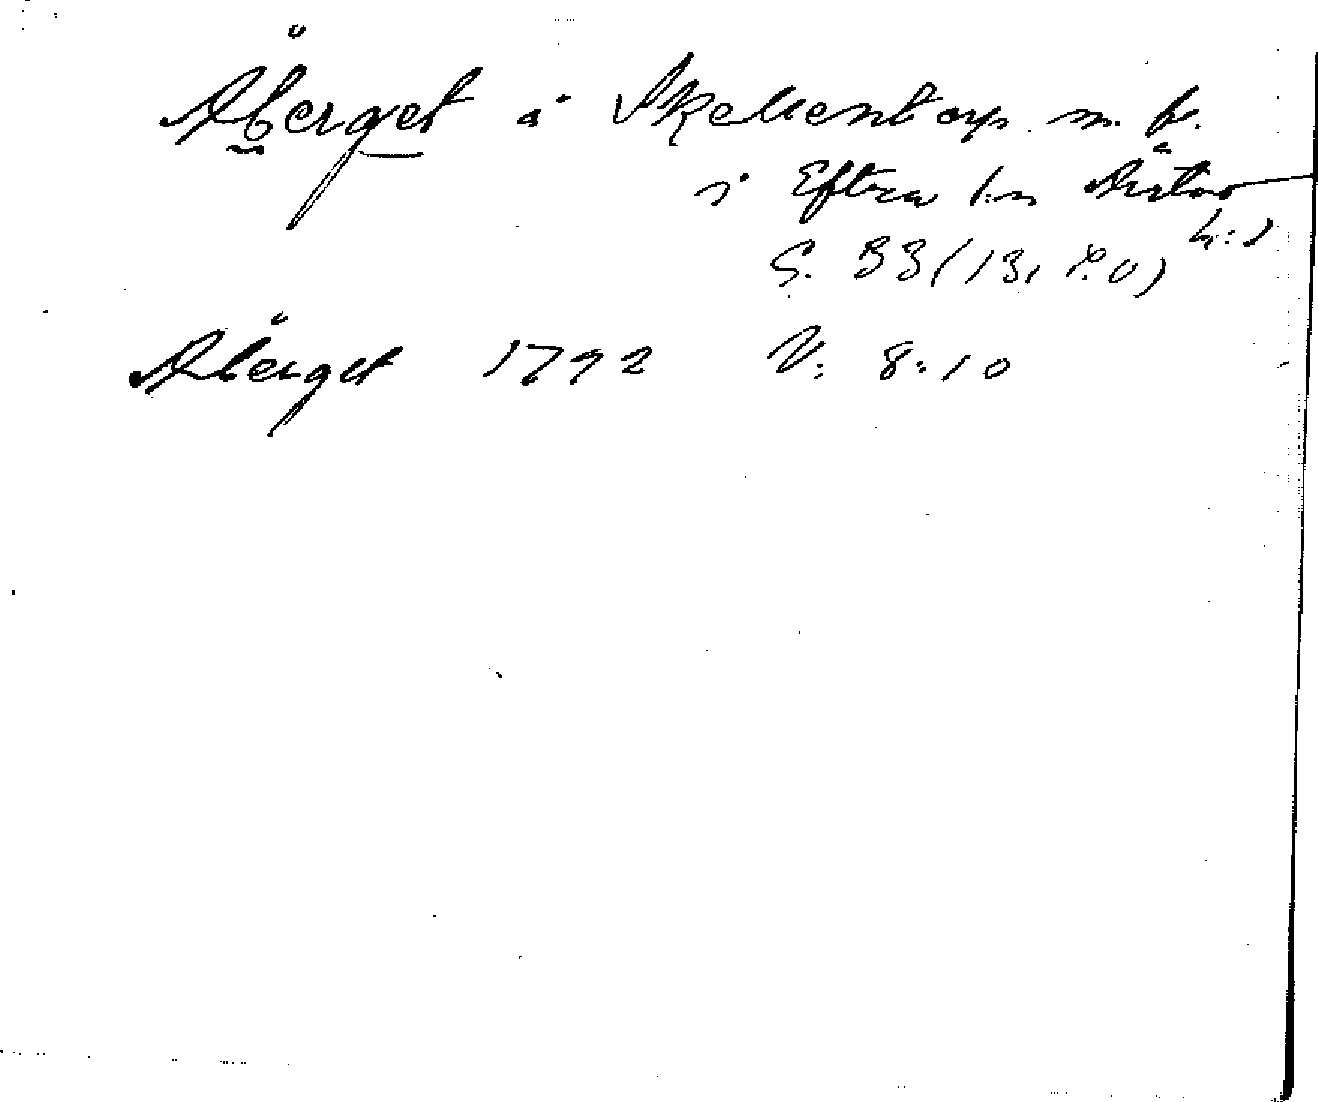 Åberget å Skellentorp m. fl.
i Eftra sn Årstads
h:d
S. 33 (13, 8.0)
Åberget 1792 V: 8:10